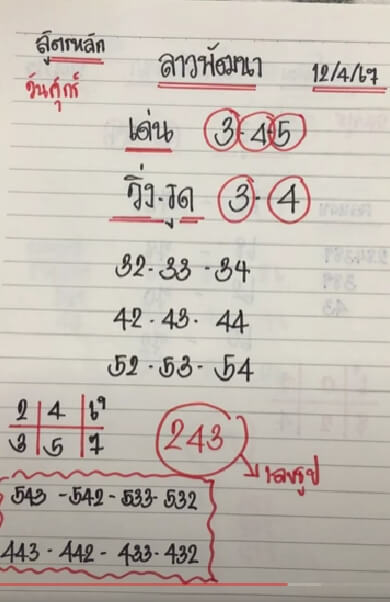 สูตรหลัก
ลาวพัฒนา
12/4/67
วันศุกร์
เด่น 3-4-5
วิ่ง.รูด 3-4
32-33-34
42-43-44
52-53-54
2 4 6
3 5 7
243
เลขรูป
543-542-533-532
443-442-433-432